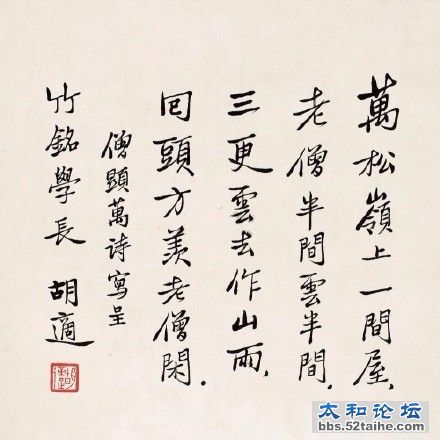 萬松嶺上一間屋、
老僧半間雲半間.
三更雲去作山雨、
回頭方羨老僧閑.
僧顯萬詩寫呈
竹銘學長 胡適
太和论坛
bbs.52taihe.com